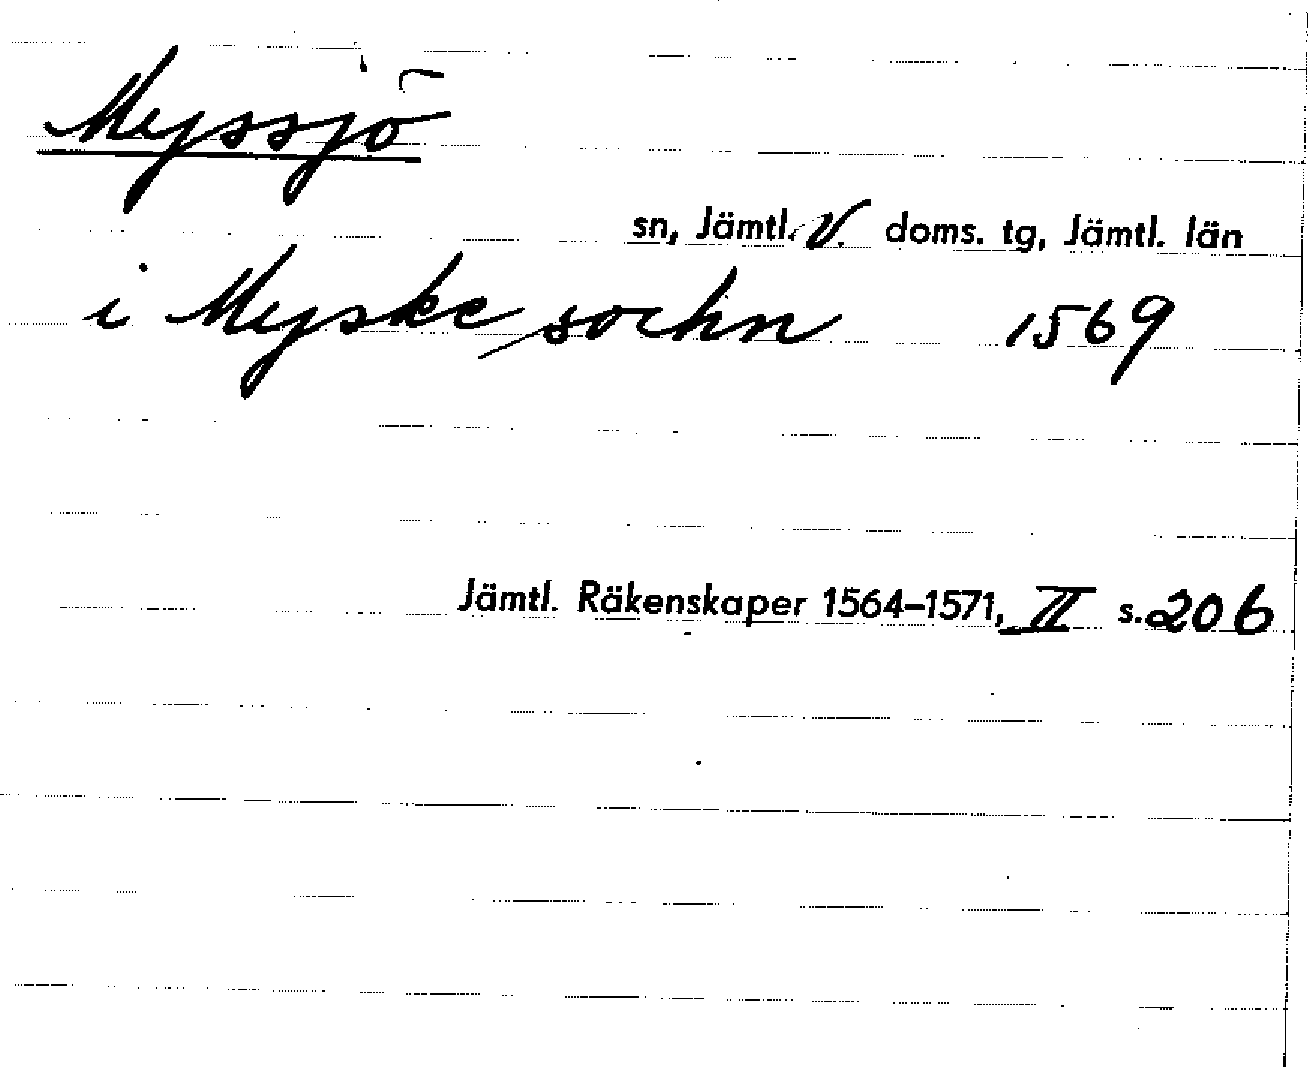 Myssjö
sn, Jämtl. V. doms. tg, Jämtl. län
i Myske/sochn 1569
Jämtl. Räkenskaper 1564-1571, II s. 206